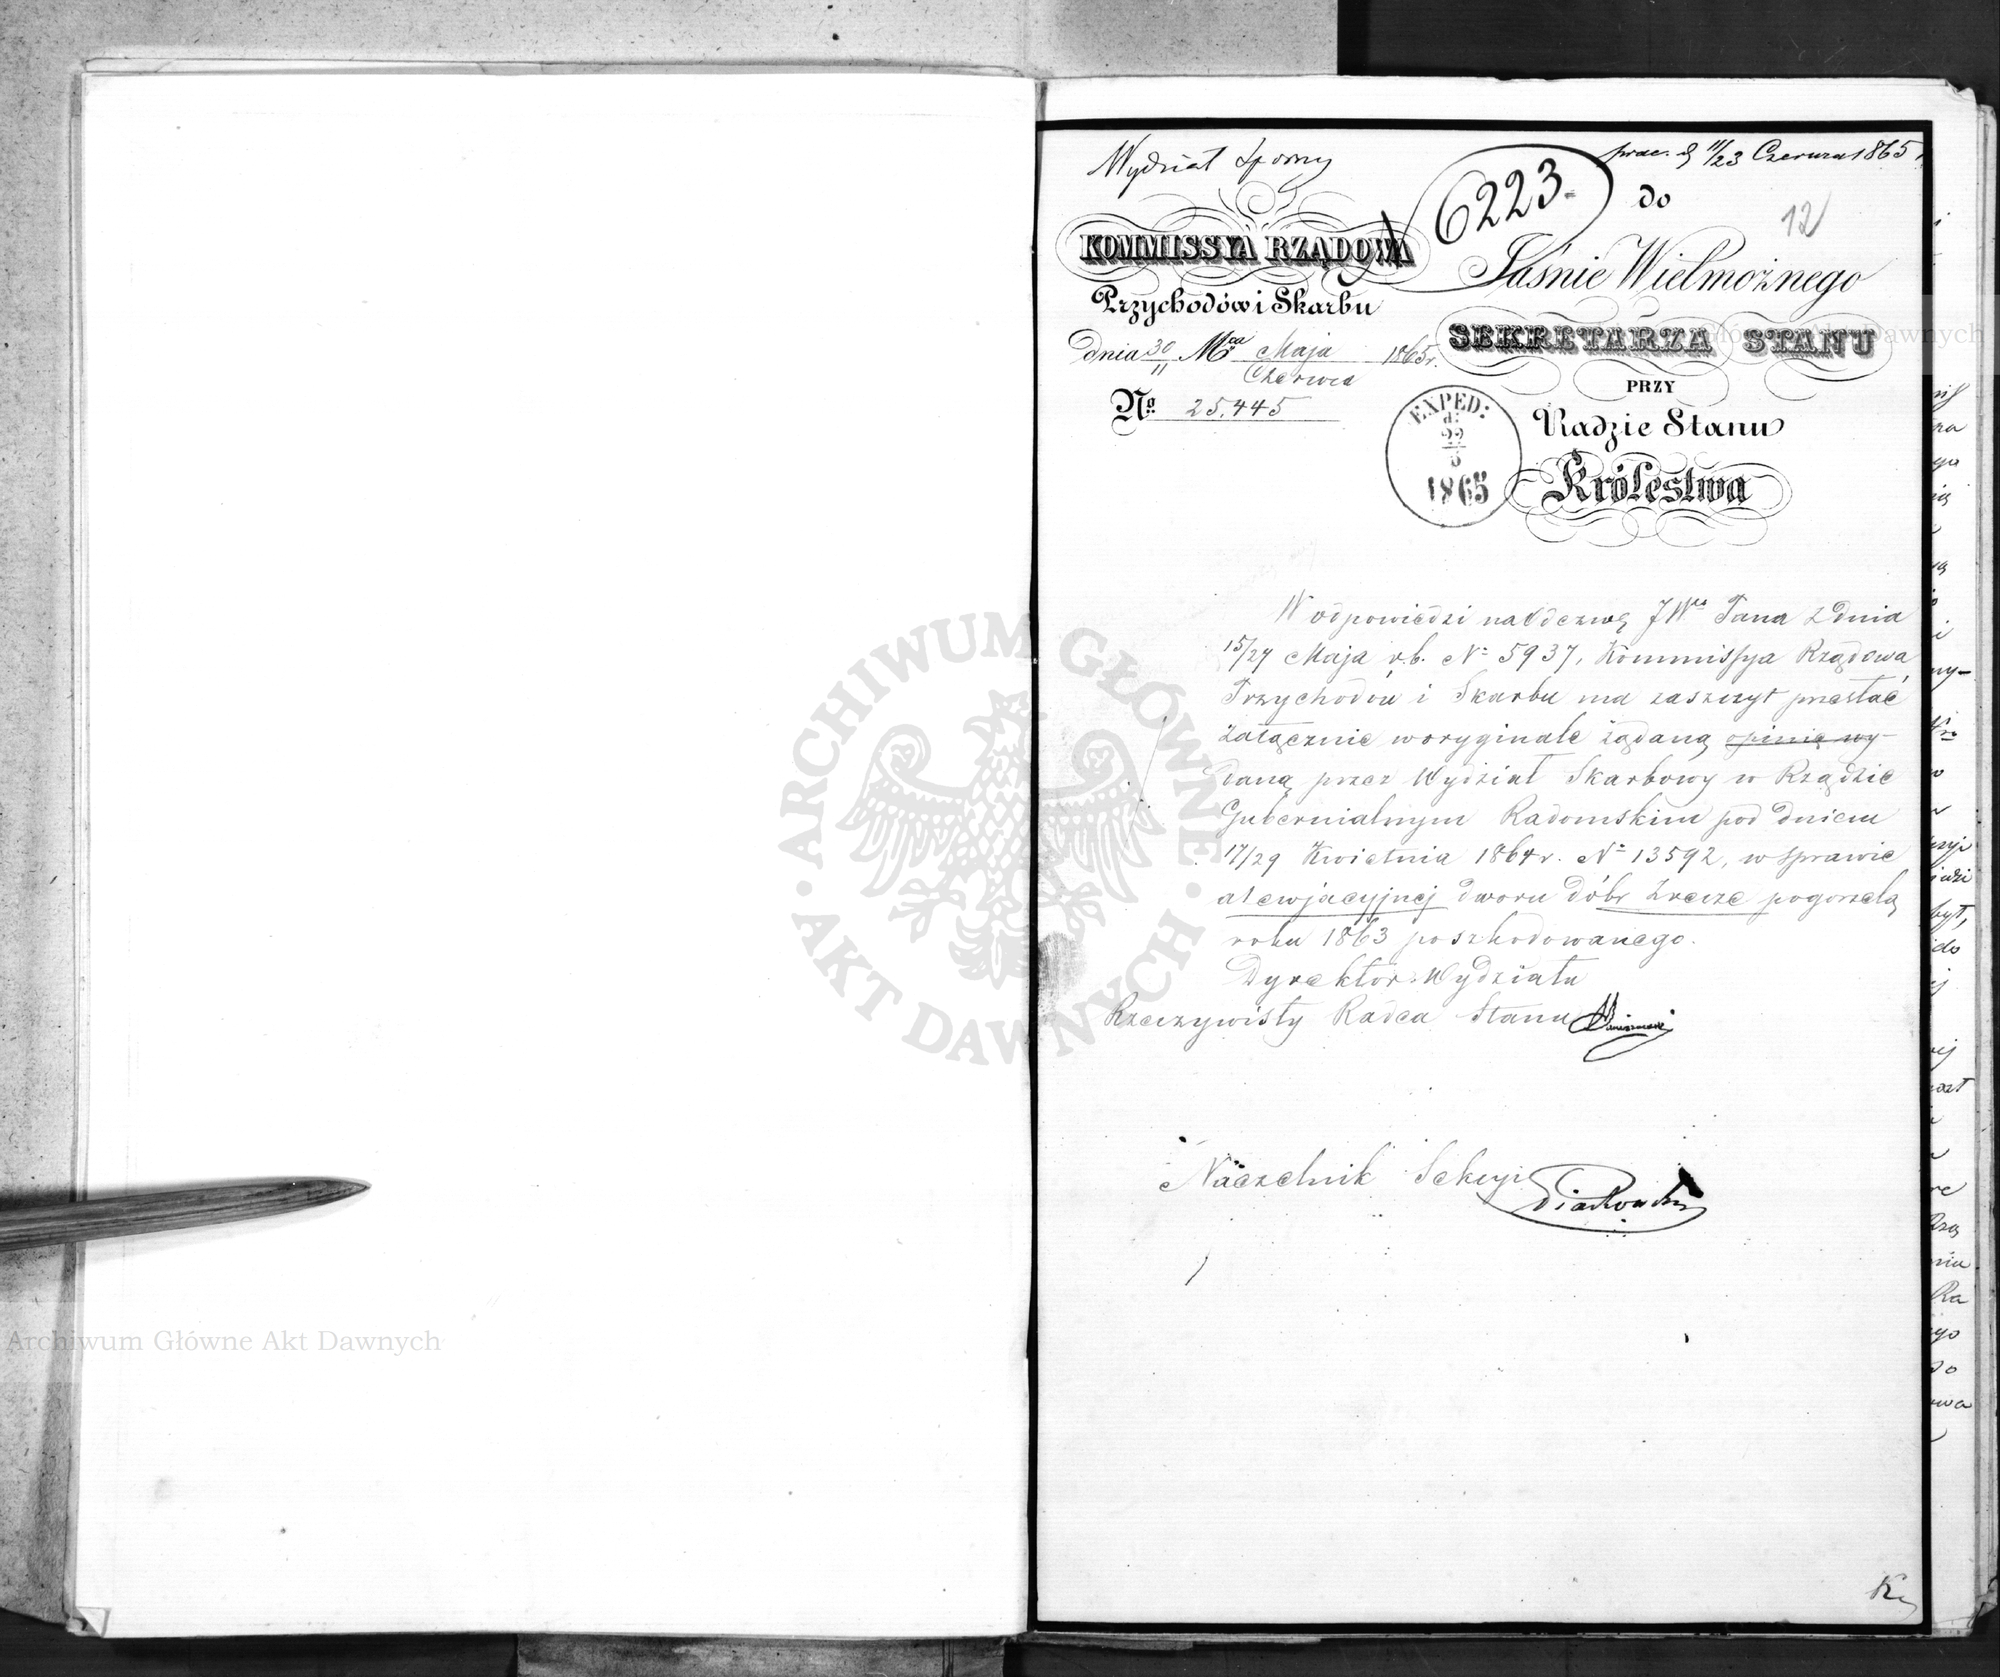 Wydział Sporny
prac. d 11/23 Czerwca 1865 r.
6223.
do
12
KOMMISSYA RZĄDOWA
Przychodów i Skarbu
dnia 30/11 Mca Maja/Czerwca 1865 r.
No. 25,445
Jaśnie Wielmożnego
SEKRETARZA STANU
PRZY
Radzie Stanu
Królestwa
EXPED:
d: 22/6
1865
W odpowiedzi na Odezwę JWo Pana z dnia
15/27 Maja r.b. No 5937, Kommissya Rządowa
Przychodów i Skarbu ma zaszczyt przesłać
załącznie w oryginale żądaną opinię wy-
daną przez Wydział Skarbowy w Rządzie
Gubernialnym Radomskim pod dniem
17/29 Kwietnia 1864 r. No 13592, w sprawie
alewjacyjnej dworu dóbr Zrecze pogorzelą
roku 1863 poszkodowanego.
Dyrektor Wydziału
Rzeczywisty Radca Stanu
Naczelnik Sekcyi
ARCHIWUM GŁÓWNE AKT DAWNYCH
Archiwum Główne Akt Dawnych